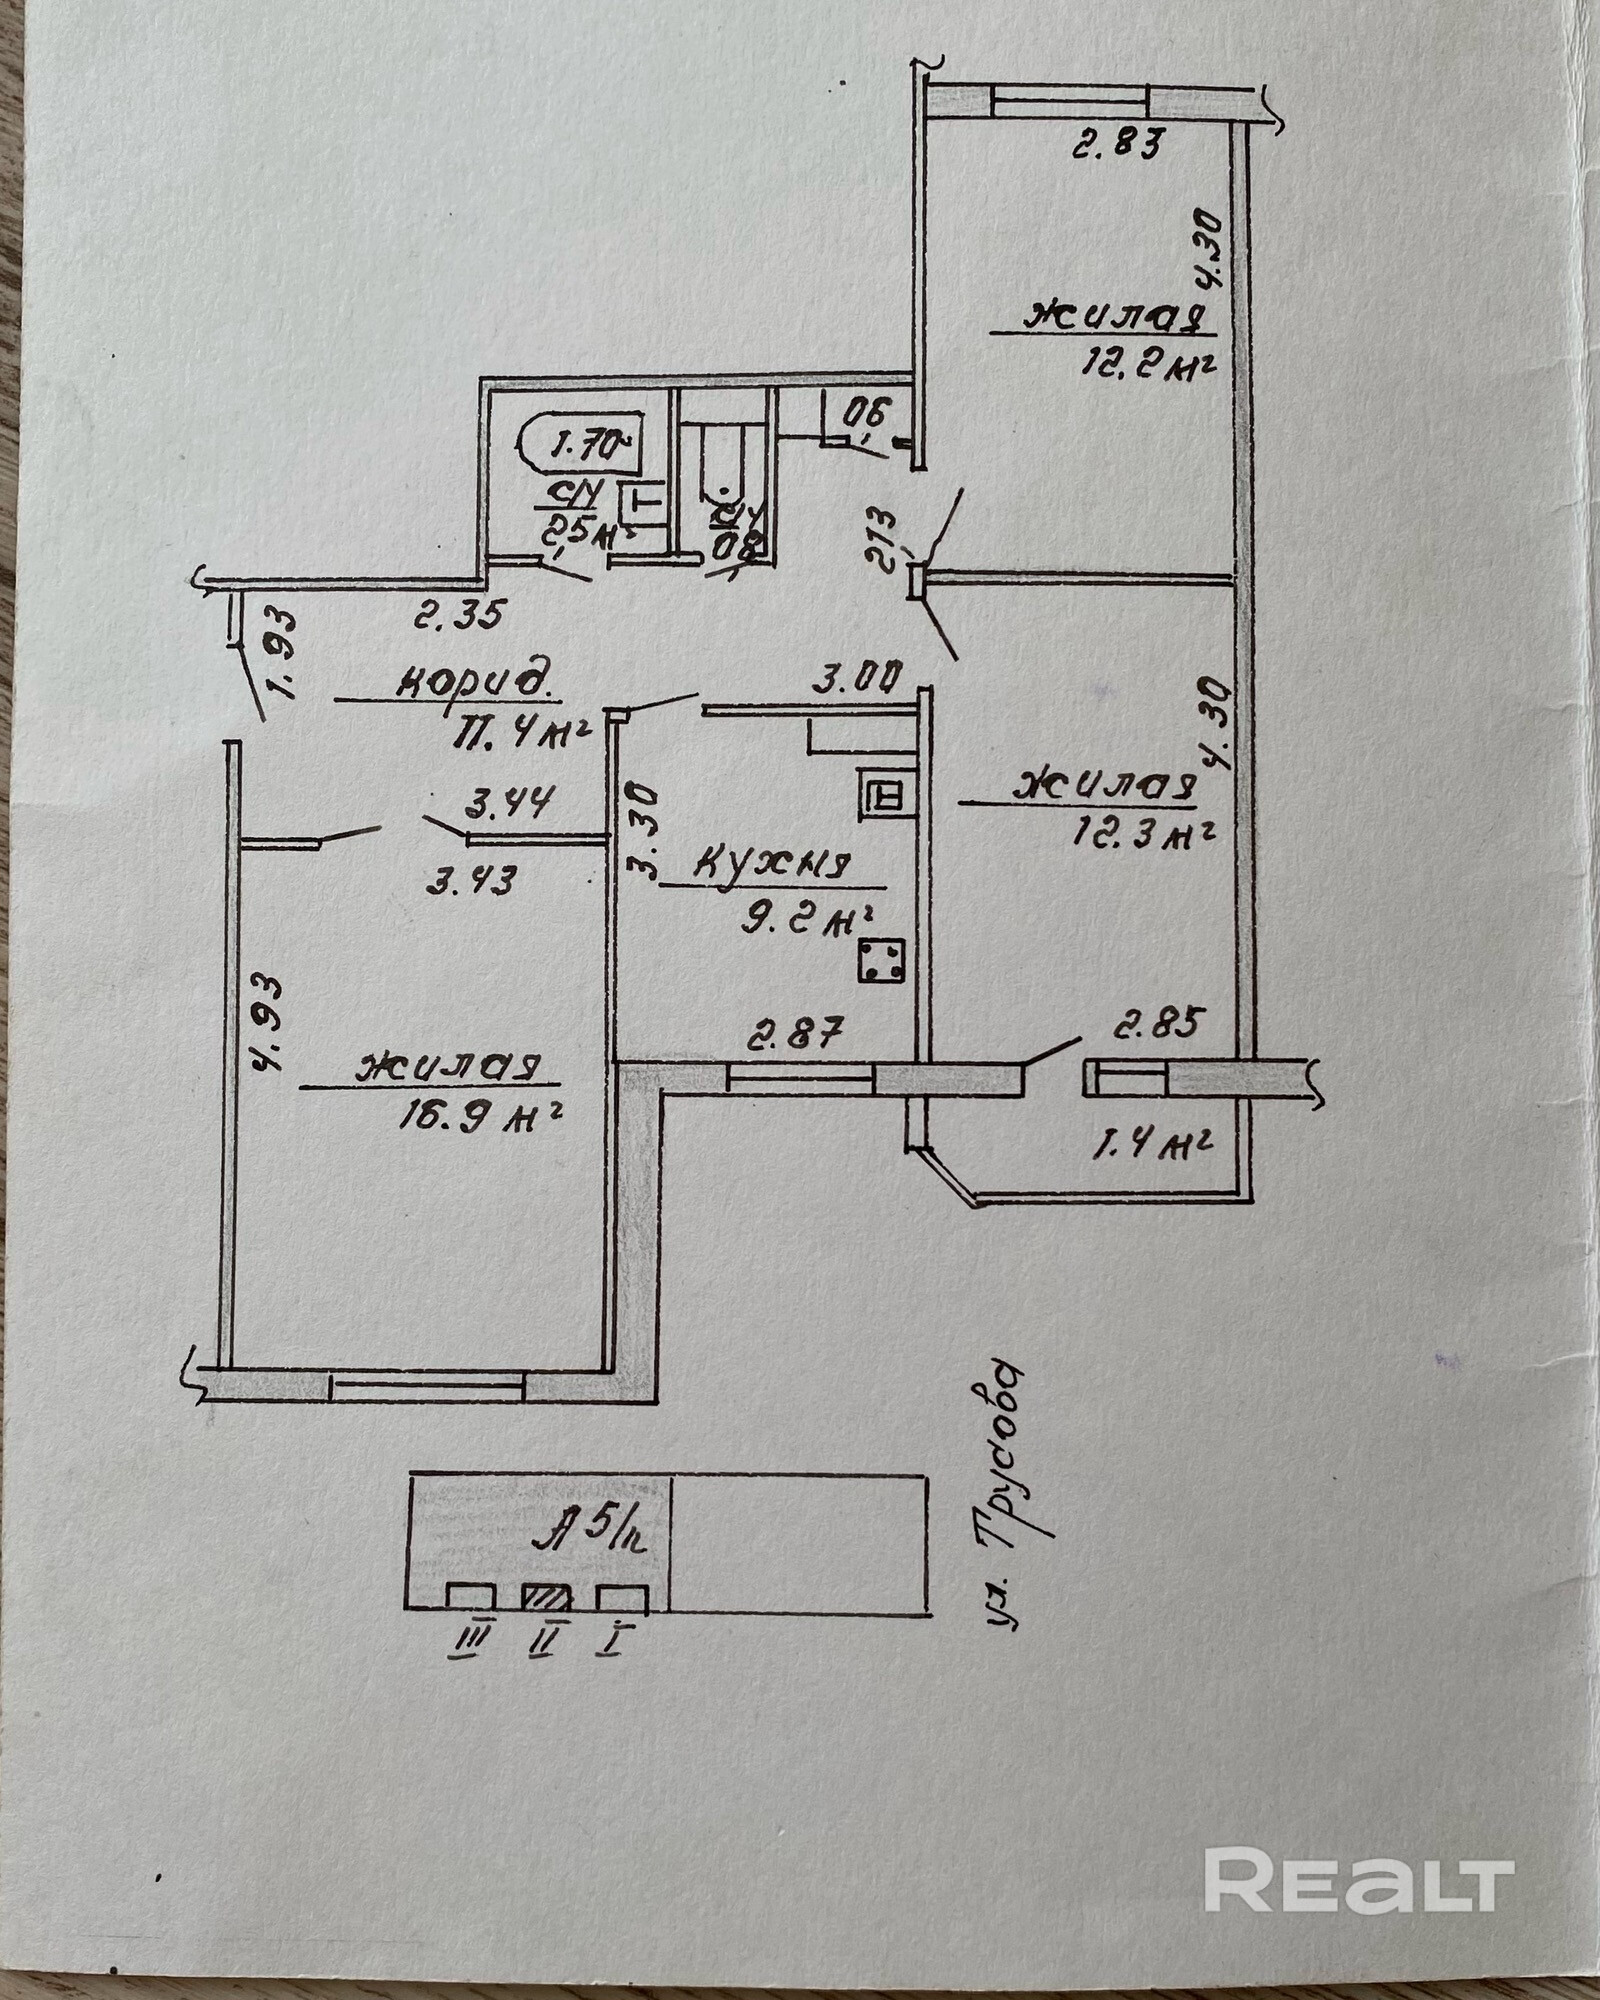 2.83
4.30
жилая
12.2 м²
06
1.70
с/у
2,5 м²
с/у
08
2,13
2.35
1.93
корид.
11.4 м²
3.00
3.44
3.43
3.30
кухня
9.2 м²
4.30
жилая
12.3 м²
2.87
2.85
4.93
жилая
16.9 м²
1.4 м²
А 5/к
III II I
ул. Трусова
REALT